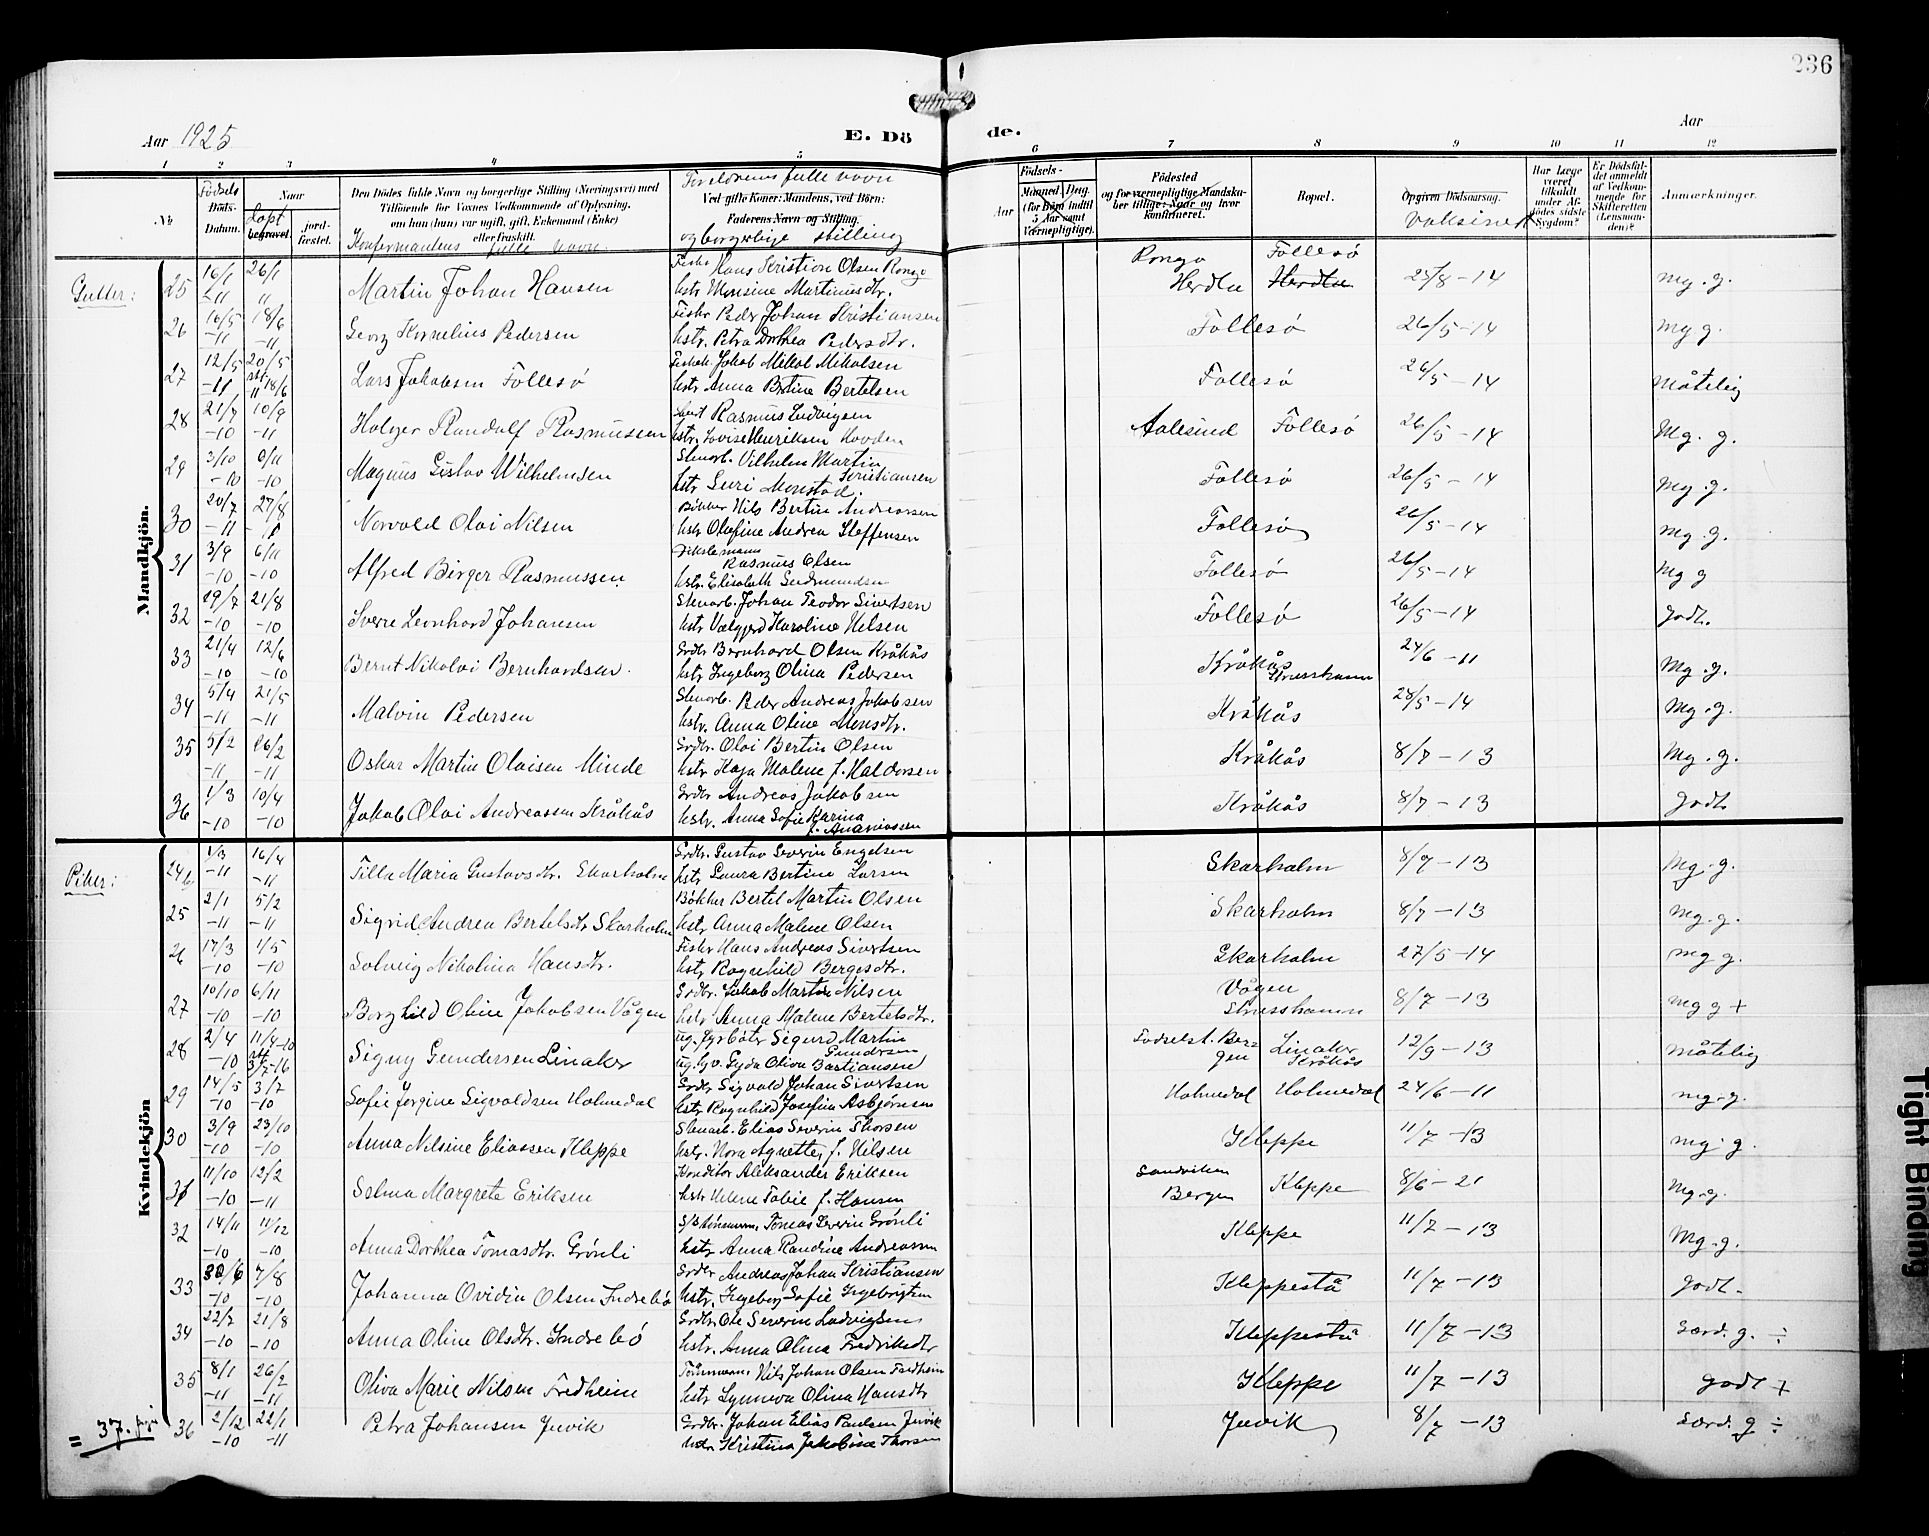 236
Aar 1925
E. Dö
de.
Aar
1 2 3 4 5 6 7 8 9 10 11 12
№
Fødsels
Döds-
Datum.
Naar
Døpt
begravet.
jord-
fæstet.
Den Dödes fulde Navn og borgerlige Stilling (Næringsvei) med
Tilföiende for Voxnes Vedkommende af Oplysning,
om han (hun) var ugift, gift, Enkemand (Enke)
eller fraskilt.
Konfirmandens fulle navn
Foreldrenes fulle navn
Ved gifte Koner: Mandens, ved Börn:
Faderens Navn og Stilling.
og borgerlige stilling
Aar
Födsels-
Maaned. Dag.
(for Börn indtil
5 Aar samt
Værnepligtige).
Födested
og for værnepligtige Mandskaber tillige: Naar og hvor
konfirmeret.
Bopæl.
Opgiven Dödsaarsag.
Vaksinert
Har Læge
været
tilkaldt
under Afdödes sidste
Sygdom?
Er Dödsfaldet anmeldt
af Vedkommende for
Skifteretten
(Lensmanden)?
Anmærkninger.
Gutter:
Mandkjön.
25 16/1 -11 26/1 " Martin Johan Hansen Fisker Hans Kristian Olsen Rongø hstr Monsine Martinusdtr. Rongø Herdla Follesø Herdla 25/8-14 Mg. g.
26 16/5 -11 18/6 -11 Georg Kornelius Pedersen Fisker Peder Johan Kristiansen hstr. Petra Dorthea Pedersdtr. Follesø 26/5-14 Mg g.
27 12/5 -11 20/5 " 18/6 Lars Jakobsen Follesø Jakob Mikal Mikalsen hstr Anna Bertine Bertelsen Follesø 26/5-14 Måtelig
28 21/7 -10 10/9 -11 Holger Randolf Rasmussen Rasmus Ludvigsen hstr. Lovise Henriksen Hovden Aalesund Follesø 26/5-14 Mg. g.
29 3/10 -10 6/11 -10 Magnus Gustav Wilhelmsen Stenarb. Vilhelm Martin Kristiansen hstr Guri Monstad. Follesø 26/5-14 Mg. g.
30 20/7 -11 27/8 -11 Norvald Olai Nilsen Bøkker Nils Bertin Andreassen hstr Olefine Andrea Steffensen Follesø 26/5-14 Mg. g.
31 3/9 -10 6/11 -10 Alfred Birger Rasmussen Rasmus Olsen hstr. Elisabeth Gudmundsen Follesø 26/5-14 Mg g
32 19/7 -10 21/8 -10 Sverre Leonhard Johansen Stenarb. Johan Teodor Sivertsen hstr Valgjerd Karoline Nilsen Follesø 26/5-14 Godt.
33 21/4 -10 12/6 -10 Bernt Nikolai Bernhardsen. Grdbr Bernhard Olsen Kråkås hstr Ingeborg Olina Pedersen Kråkås Strusshamn 24/6-11 Mg. g.
34 5/4 -11 21/5 -11 Malvin Pedersen Stenarb. Peder Andreas Jakobsen hstr. Anna Oline Monsdtr. Kråkås 28/5-14 Mg. g.
35 5/2 -11 26/2 -11 Oskar Martin Olaisen Minde Grdbr. Olai Bertin Olsen hstr Kaja Malene f. Haldorsen Kråkås 8/7-13 Mg. g.
36 1/3 -10 10/4 -10 Jakob Olai Andreassen Kråkås Grdbr Andreas Jakobsen hstr. Anna Sofie Karina f. Ananiassen Kråkås 8/7-13 Godt.
Piker:
Kvindekjön
24b 1/3 -11 16/4 -11 Tilla Maria Gustavsdtr. Skarholm Grdbr. Gustav Severin Engelsen hstr Laura Bertine Larsen Skarholm 8/7-13 Mg. g.
25 2/1 -11 5/2 -11 Sigrid Andrea Bertelsdtr Skarholm Bøkker Bertel Martin Olsen hstr Anna Malene Olsen Skarholm 8/7-13 Mg. g.
26 17/3 -10 1/5 -10 Solveig Nikolina Hansdtr. Fisker Hans Andreas Sivertsen hstr Ragnhild Bergesdtr. Skarholm 27/5-14 Mg g.
27 10/10 -10 6/11 -10 Borghild Oline Jakobsen Vågen Grdbr. Jakob Martin Nilsen hstr Anna Malene Bertelsdtr. Vågen Strusshamn 8/7-13 Mg g +
28 2/4 -10 11/4-10 3/7-16 Signy Gundersen Linaker ug. fyrbøter Sigurd Martin Gundersen ug. Gyda Oliva Bastiansen Fødselst. Bergen Linaker Kråkås 12/9-13 Måtelig
29 14/5 -10 3/7 -10 Sofie Jørgine Sigvaldsen Holmedal Grdbr Sigvald Johan Sivertsen hstr Ragnhild Josefina Asbjørnsen Holmedal Holmedal 24/6-11 Mg. g.
30 3/9 -10 23/10 -10 Anna Nilsine Eliassen Kleppe Stenarb. Elias Severin Thorsen hstr. Nora Agnette f. Nilsen Kleppe 11/7-13 Mg. g.
31 11/10 -10 12/2 -11 Selma Margrete Eriksen Konditor Aleksander Eriksen hstr Helene Tobie f. Hansen Sandviken Bergen Kleppe 8/6-21 Mg. g.
32 14/11 -10 11/12 -10 Anna Dorthea Tomasdtr. Grönli Tomas Severin Grönli hstr Anna Randine Andreassen Kleppe 11/7-13 Mg. g.
33 30/6 -10 7/8 -10 Johanna Ovidia Olsen Indrebø Grdbr Andreas Johan Kristiansen hstr. Ingeborg Sofie Ingebrigtsen Kleppestø 11/7-13 Godt.
34 22/7 -10 21/8 -10 Anna Oline Olsdtr. Indrebø Grdbr. Ole Severin Ludvigsen hstr. Anna Olina Fredriksdtr Kleppestø 11/7-13 Særd. g. ÷
35 8/1 -11 26/2 -11 Oliva Marie Nilsen Fredheim Tømmerm. Nils Johan Olsen Fredheim hstr Synneva Olina Hansdtr Kleppe 11/7-13 Godt +
36 2/12 -10 22/1 -11 Petra Johansen Juvik Grdbr. Johan Elias Paulsen Juvik hstr Kristina Jakobine Thorsen Juvik 8/7-13 Særd. g ÷
= 37.
Tight Binding